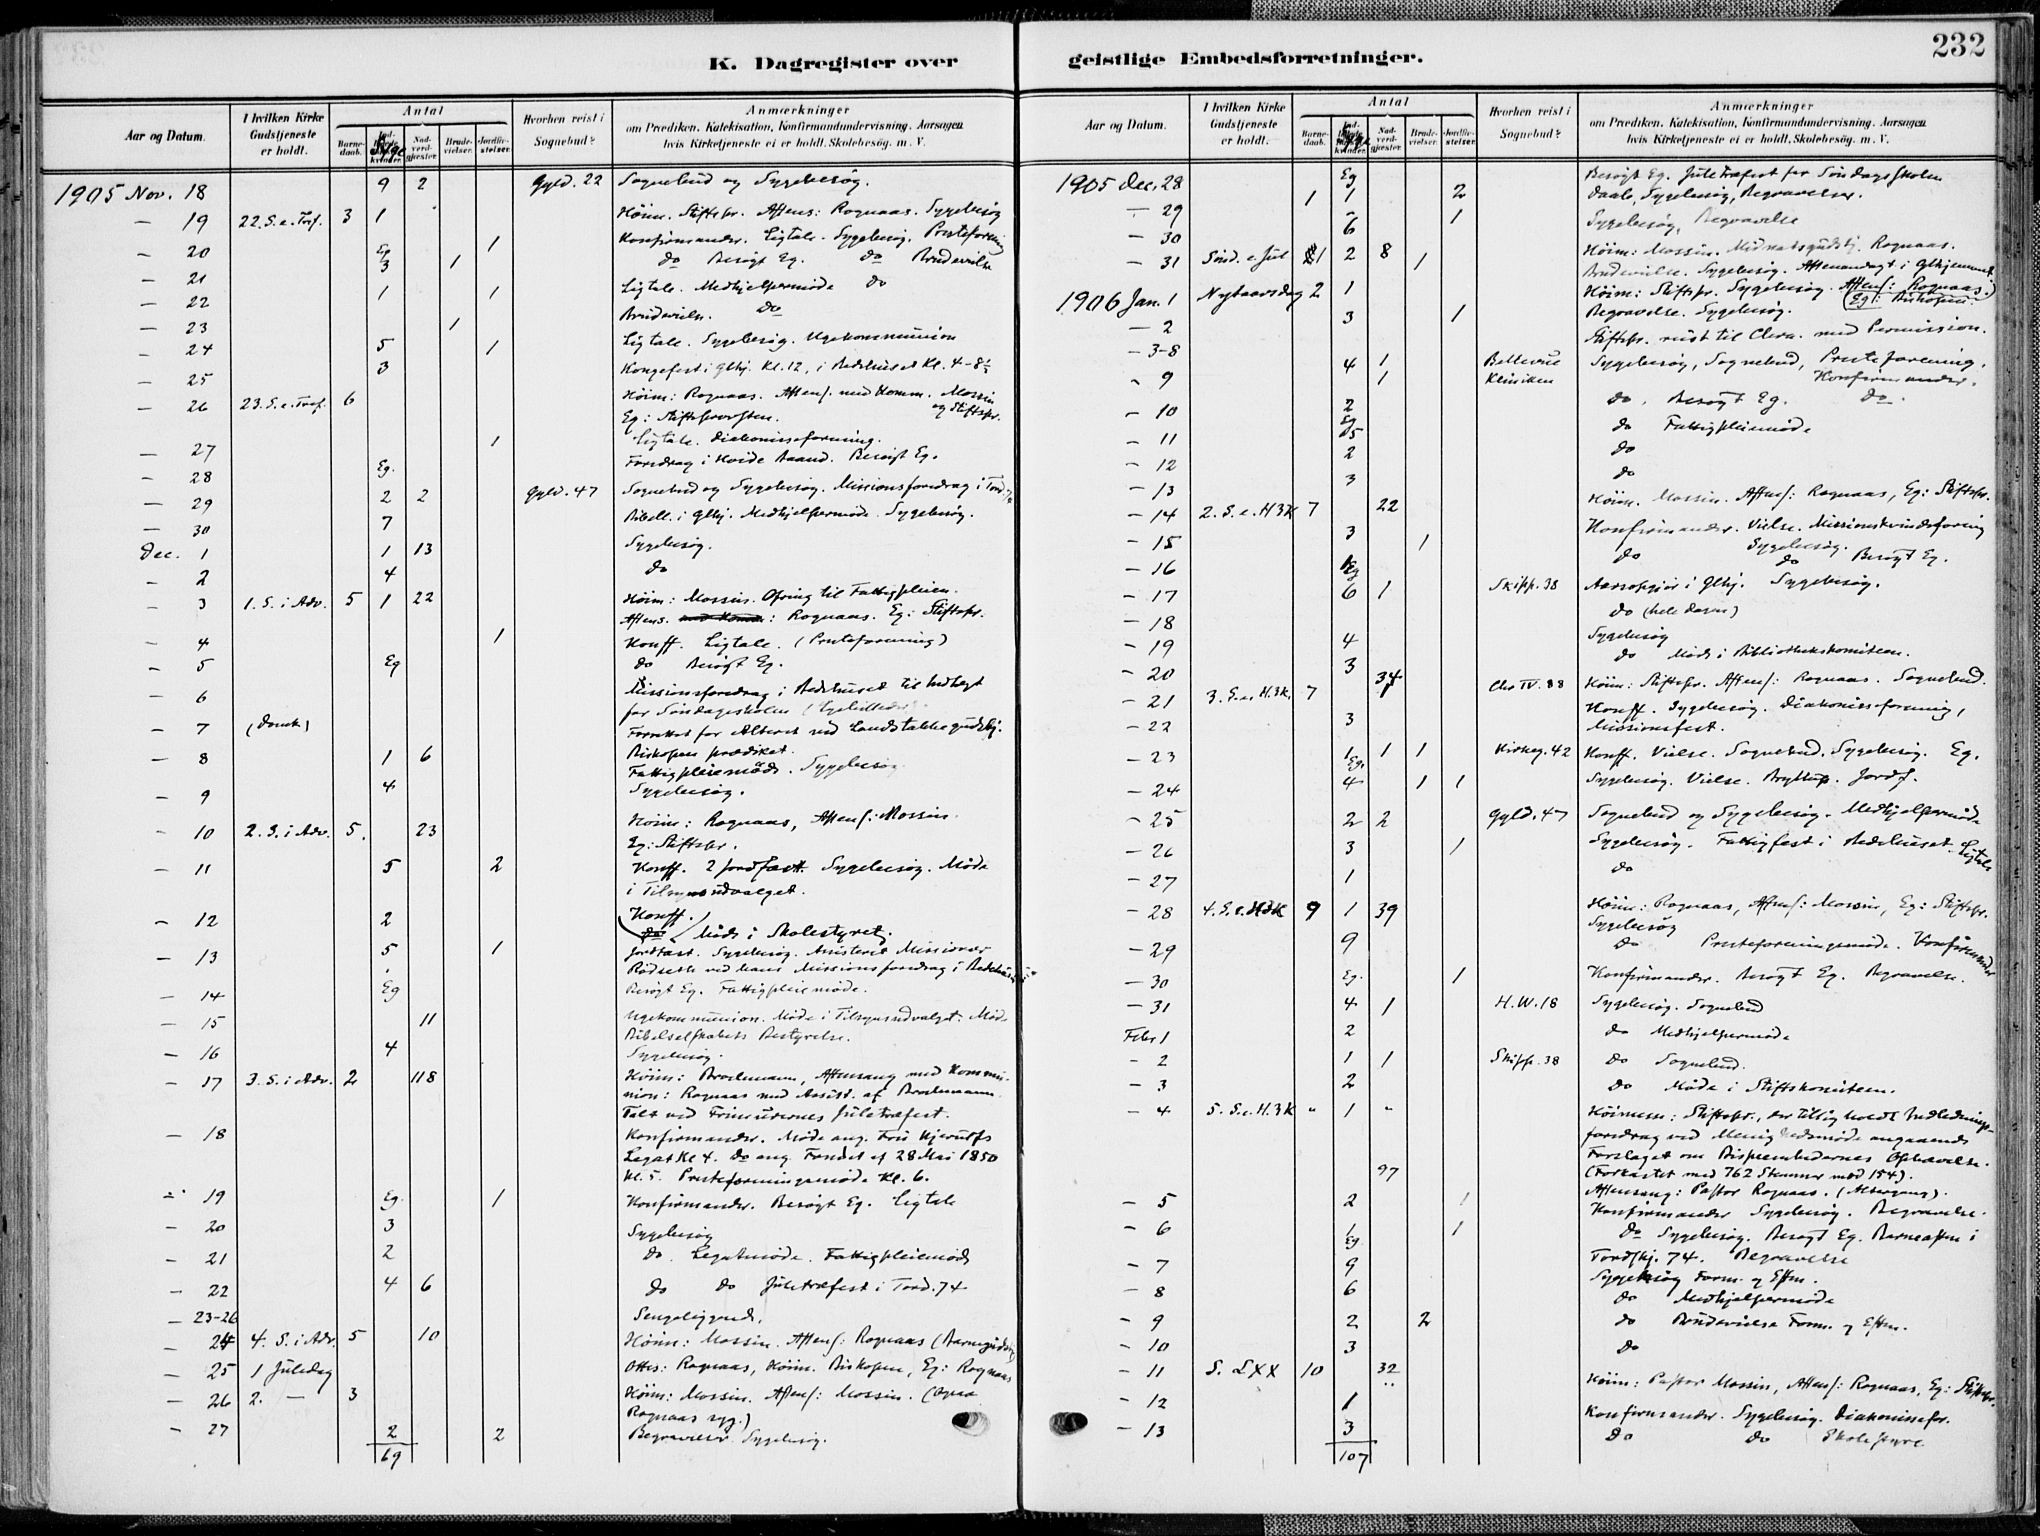 232
K. Dagregister over geistlige Embedsforretninger.
Aar og Datum. I hvilken Kirke Gudstjeneste er holdt. Antal Barnedaab. Syge Nadverdgjester. Brudevielser. Jordfæstelser. Hvorhen reist i Sognebud? Anmærkninger
om Prædiken, Katekisation, Konfirmandundervisning, Aarsagen
hvis Kirketjeneste ei er holdt, Skolebesøg. m. V.
1905 Nov. 18 9 2 Gyld. 22 Sognebud og Sygebesøg.
— 19 22. S. e. Tref. 3 1 Höim. Stiftspr. Aftens: Rognaas. Sygebesøg
— 20 Eg 1 Konfirmander. Ligtale. Sygebesøg. Presteforening
— 21 3 1 do Besøgt Eg. do Brudevielse
— 22 1 1 Ligtale. Medhjelpermøde do
— 23 1 Brudeviels. do
— 24 5 1 Ligtale. Sygebesøg. Ugekommunion
— 25 3 Kongefest i Glhj. Kl. 12, i Bedehuset Kl. 4-8½
— 26 23. S. e. Tref. 6 Höim: Rognaas. Aftens. med Komm. Mossin
og Stiftspr.
Eg: Stiftsprovsten.
— 27 1 Ligtale. Diakonisseforening.
— 28 Eg. Foredrag i Hvide Baand. Besøgt Eg.
— 29 2 2 Gyld. 47 Sognebud og Sygebesøg. Missionsforedrag i Tord. 74
— 30 7 Bibell. i Glhj. Medhjelpermøde. Sygebesøg.
Dec. 1 1 13 Sygebesøg.
— 2 4 do
— 3 1. S. i Adv. 5 1 22 Höim: Mossin. Ofring til Fattigpleien.
Aftens. : Rognaas. Eg: Stiftspr.
— 4 1 Konff. Ligtale. (Presteforening)
— 5 Eg do Besøgt Eg.
— 6 Missionsforedrag i Bedehuset til Indtægt
for Søndagsskolen
— 7 (Domk) Forrettet for Alteret ved Landstallsgudstj.
Biskopen prædiket.
— 8 1 6 Fattigpleiemøde. Sygebesøg
— 9 4 Sygebesøg.
— 10 2. S. i Adv. 5. 23 Höim: Rognaas, Aftens: Mossin.
Eg: Stiftspr.
— 11 5 2 Konff. 2 Jordfæst. Sygebesøg. Møde
i Tilsynsudvalget.
— 12 2 Konff.
do Møde i Skolestyret.
— 13 5 1 Jordfæst. Sygebesøg. Assisteret Missionær
Rødseth ved hans Missionsforedrag i Bedehuset
— 14 Eg Besøgt Eg. Fattigpleiemøde.
— 15 11 Ugekommunion. Møde i Tilsynsudvalget. Møde
Bibelselskabets Bestyrelse.
— 16 4 Sygebesøg.
— 17 3. S. i Adv. 2 118 Höim: Brochmann, Aftensang med Kommunion: Rognaas med Assist. af Brochmann.
Talt ved Frimurernes Juletræfest.
— 18 Konfirmander. Møde ang. Fru Kjerulfs
Legat Kl 4. do ang. Fondet af 28 Mai 1850
Kl. 5. Presteforeningsmøde Kl. 6.
— 19 Eg. 1 Konfirmander. Besøgt Eg. Ligtale
— 20 3 Sygebesøg
— 21 2 do. Legatmøde. Fattigpleiemøde
— 22 4 6 do do Juletræfest i Tord. 74
— 23-26 Sengeliggende.
— 24 4. S. i Adv. 5 10 Höim: Mossin. Aftens: Rognaas (Barnegudstj)
— 25 1 Juledag Ottes: Rognaas, Höim. Biskopen, Eg: Rognaas
— 26 2. — 3 Höim: Mossin. Aftens: Mossin. (
Rognaas syg.)
— 27 2 2 Begravelse. Sygebesøg.
69
Aar og Datum. I hvilken Kirke Gudstjeneste er holdt. Antal Barnedaab. Syge Nadverdgjester. Brudevielser. Jordfæstelser. Hvorhen reist i Sognebud? Anmærkninger
om Prædiken, Katekisation, Konfirmandundervisning, Aarsagen
hvis Kirketjeneste ei er holdt, Skolebesøg. m. V.
1905 Dec. 28 Eg Besøgt Eg. Juletræfest for Søndagsskolen
— 29 1 1 2 Daab, Sygebesøg, Begravelser.
— 30 6 1 Sygebesøg, Begravelse
— 31 Sønd. e. Jul 1 2 8 1 Höim: Mossin. Midnatsgudstj. Rognaas.
Brudevielse. Sygebesøg. Aftenandagt i Glhjemmet
1906 Jan. 1 Nytaarsdag 2 1 Höim: Stiftspr. Sygebesøg. Aftens: Rognaas
Eg: Biskopen
— 2 3 1 Begravelse. Sygebesøg.
— 3-8 Stiftspr. reist til Chra. med Permission.
— 9 4 1 Bellevue Sygebesøg, Sognebud, Presteforening,
1 Kliniken Konfirmander.
— 10 2 do. Besøgt Eg. do.
— 11 Eg 5 do Fattigpleiemøde
— 12 2 do
— 13 3 do
— 14 2. S. e. H3K 7 22 Höim. Mossin. Aftens: Rognaas, Eg: Stiftspr.
— 15 3 1 Konfirmander. Vielse. Missionskvindeforening
Sygebesøg.
— 16 Eg do do Besøgt Eg.
— 17 6 1 Skipp. 38 Aarsopgjør i Glhj. Sygebesøg.
— 18 do (hele dagen)
— 19 4 Sygebesøg
— 20 3 do Møde i Bibliothekskomiteen.
— 21 3. S. e. H.3K. 7 34 1 Chr IV. 88 Höim: Stiftspr. Aftens: Rognaas. Sognebud.
— 22 3 Konff. Sygebesøg. Diakonisseforening,
Missionsfest.
— 23 1 Eg. 1 1 Kirkeg. 42 Konff. Vielse. Sognebud. Sygebesøg. Eg.
— 24 4 1 1 Sygebesøg. Vielse. Bryllup. Jordf.
— 25 2 2 Gyld. 47 Sognebud og Sygebesøg. Medhjelpermøde
— 26 3 1 Sygebesøg. Fattigfest i Bedehuset. Ligtale
— 27 1 do
— 28 4. S. e. H3K 9 1 39 Höim: Rognaas, Aftens: Mossin, Eg: Stiftspr.
Sygebesøg
— 29 9 do Presteforeningsmøde. Konfirmander
— 30 Eg. 1 Konfirmander. Besøgt Eg. Begravelse.
— 31 4 1 H. W. 18 Sygebesøg. Sognebud
Febr 1 2 do Medhjelpermøde
- 2 1 1 Skipp. 38 do Sognebud.
- 3 2 do Møde i Stiftskomiteen.
- 4 5. S. e. H. 3K " 1 " Höimesse: Stiftspr., der tillige holdt Indledningsforedrag ved Menighedsmøde angaaende
Forslaget om Bispeembedernes Ophævelse.
97 (Forkastet med 762 Stemmer mod 154).
Aftensang: Pastor Rognaas. (Altergang).
— 5 2 1 Konfirmander Sygebesøg. Begravelse.
- 6 1 Eg 1 do Sygebesøg. Besøgt Eg. Barneaften i
Tordskj. 74. Begravelse
- 7 9 Sygebesøg Form. og Eftm.
- 8 6 do Medhjelpermøde
- 9 2 2 do Brudevielse Form. og Eftm.
- 10 3 do
- 11 S. LXX 10 32 Höim: Pastor Mossin, Aftens: Rognaas, Eg: Stiftspr.
- 12 1 Konfirmander. Sygebesøg. Diakonissefor.
- 13 3 do do Skolestyre
107